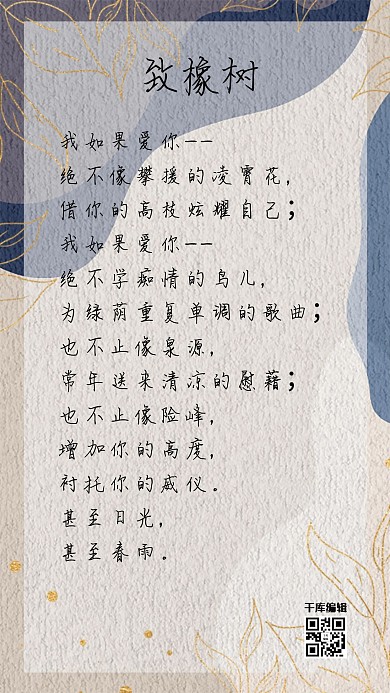 致橡树
我如果爱你--
绝不像攀援的凌霄花，
借你的高枝炫耀自己；
我如果爱你--
绝不学痴情的鸟儿，
为绿荫重复单调的歌曲；
也不止像泉源，
常年送来清凉的慰藉；
也不止像险峰，
增加你的高度，
衬托你的威仪。
甚至日光，
甚至春雨。
千库编辑